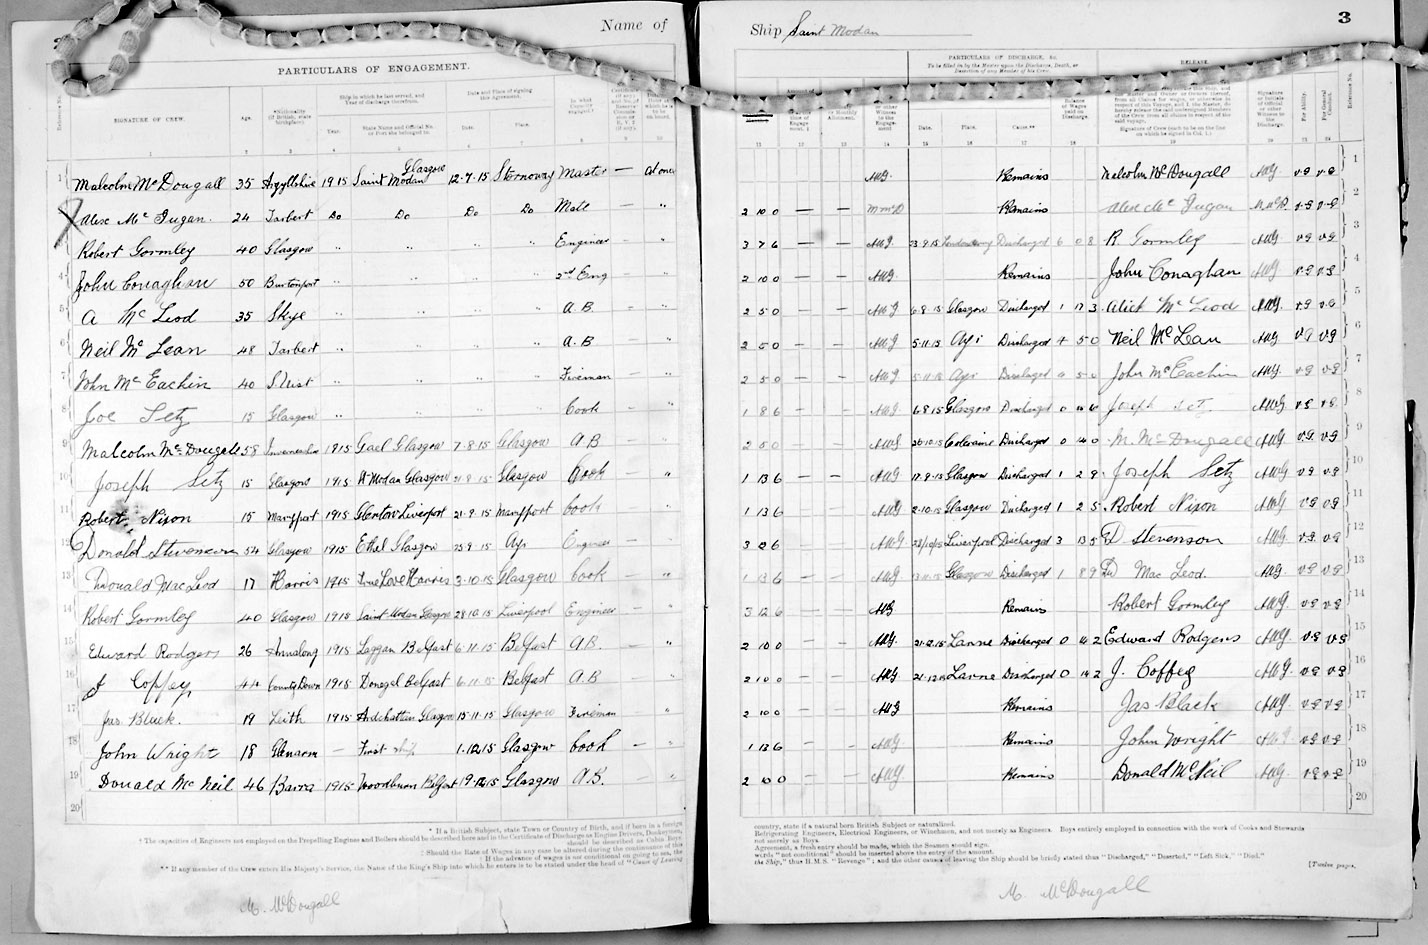 Name of
PARTICULARS OF ENGAGEMENT.
Ship in which he last served, and Year of discharge therefrom.
Date and Place of signing this Agreement.
SIGNATURE OF CREW.
Age.
Year.
State Name and Official No. or Port she belonged to.
Date.
Place.
1 2 3 4 5 6 7 8 9 10
1 Malcolm McDougall 35 Argyllshire 1915 Saint Modan Glasgow 12-7-15 Stornoway Master — At once
Alex Mc Gugan. 24 Tarbert Do Do Do Do Mate — "
Robert Gormley 40 Glasgow " " " " Engineer — "
4 John Conaghan 50 Burtonport " " " " 2nd Eng — "
5 A Mc Leod 35 Skye " " " A.B. — "
6 Neil Mc Lean 48 Tarbert " " " " A.B — "
7 John Mc Eachin 40 S Uist " " " " Fireman — "
8 Joe Setz 15 Glasgow " " " " Cook — "
9 Malcolm McDougall 58 1915 Gael Glasgow 7-8-15 Glasgow A.B — "
10 Joseph Setz 15 Glasgow 1915 St Modan Glasgow Glasgow Cook — "
11 Robert Nixon 15 Maryport 1915 Liverpool 21-9-15 Maryport Cook — "
12 Donald Stevenson 54 Glasgow 1915 Ethel Glasgow 25 9-15 Ayr Engineer — "
13 Donald MacLeod 17 Harris 1915 True Love Harris 3-10-15 Glasgow Cook — "
14 Robert Gormley 40 Glasgow 1915 Saint Modan Glasgow 28-10-15 Liverpool Engineer — "
15 Edward Rodgers 26 Annalong 1915 Laggan Belfast 6-11-15 Belfast A.B. — "
16 J Coffey 44 County Down 1915 Donegal Belfast 6-11-15 Belfast A.B — "
17 Jas. Black. 19 Leith 1915 Ardchattan Glasgow 15-11-15 Glasgow Fireman "
18 John Wright 18 Glenarm — First ship 1-12-15 Glasgow Cook — "
19 Donald McNeil 46 Barra 1915 Woodburn Belfast 19-12-15 Glasgow A.B. — "
20
* If a British Subject, state Town or Country of Birth, and if born in a foreign
† The capacities of Engineers not employed on the Propelling Engines and Boilers should be described here and in the Certificate of Discharge as Engine Drivers, Donkeymen,
should be described as Cabin Boys.
‡ Should the Rate of Wages in any case be altered during the continuance of this
‖ If the advance of wages is not conditional on going to sea, the
** If any member of the Crew enters His Majesty's Service, the Name of the King's Ship into which he enters is to be stated under the head of "Cause of Leaving
M. McDougall
Ship Saint Modan
3
PARTICULARS OF DISCHARGE, &c.
To be filled in by the Master upon the Discharge, Death, or Desertion of any Member of his Crew.
RELEASE.
Date.
Place.
Cause.**
Signature of Crew (each to be on the line on which he signed in Col. 1.)
Reference No.
11 12 13 14 15 16 17 18 19 20 21 22
AWG. Remains Malcolm McDougall AWG v.g v.g 1
2 10 0 — — M McD Remains Alex Mc Gugan M McD v.g v.g 2
3 7 6 — — AWG 23-9-15 Londonderry Discharged 6 0 8 R Gormley AWG v.g v.g 3
2 10 0 — — AWG. Remains John Conaghan AWG v.g v.g 4
2 5 0 — — AWG 6-8-15 Glasgow Discharged 1 17 3 Mc Leod AWG. v.g v.g 5
2 5 0 — — AWG 5-11-15 Ayr Discharged 4 5 0 Neil McLean AWG v.g v.g 6
2 5 0 — — AWG 5-11-15 Ayr Discharged 4 5 0 John McEachin AWG. v.g v.g 7
1 8 6 — — AWG 6-8-15 Glasgow Discharged 0 14 6 Joseph Setz AWG v.g v.g 8
2 5 0 — — AWG 26-10-15 Coleraine Discharged 0 14 0 M. McDougall AWG v.g. v.g 9
1 13 6 — — AWG 17-9-15 Glasgow Discharged 1 2 9 Joseph Setz AWG v.g v.g 10
1 13 6 — — AWG 2-10-15 Glasgow Discharged 1 2 5 Robert Nixon AWG v.g v.g 11
3 2 6 — — AWG Liverpool Discharged 3 13 5 D Stevenson AWG. v.g. v.g 12
1 13 6 — — AWG Glasgow Discharged 1 8 9 D Mac Leod. AWG v.g v.g 13
3 12 6 — — AWG Remains Robert Gormley AWG. v.g v.g 14
2 10 0 — — AWG. 21-12-15 Larne Discharged 0 14 2 Edward Rodgers AWG. v.g v.g 15
2 10 0 — — AWG 21-12-15 Larne Discharged 0 14 2 J. Coffey AWG. v.g v.g 16
2 10 0 — — AWG Remains Jas Black AWG. v.g v.g 17
1 13 6 — — AWG Remains John Wright AWG v.g v.g 18
2 10 0 — — AWG Remains Donald McNeil AWG. v.g v.g 19
20
country, state if a natural born British Subject or naturalized.
Refrigerating Engineers, Electrical Engineers, or Winchmen, and not merely as Engineers. Boys entirely employed in connection with the work of Cooks and Stewards
not merely as Boys.
Agreement, a fresh entry should be made, which the Seaman should sign.
words "not conditional" should be inserted above the entry of the amount.
the Ship," thus H.M.S. "Revenge"; and the other causes of leaving the Ship should be briefly stated thus "Discharged," "Deserted," "Left Sick," "Died."
[Twelve pages.
M. McDougall